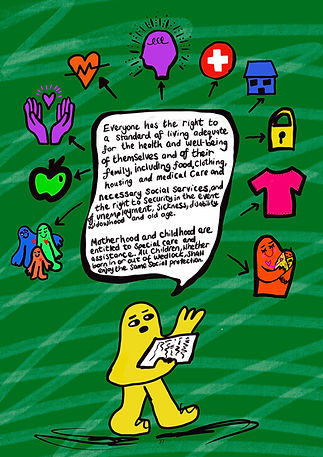 Everyone has the right to
a standard of living adequate
for the health and well-being
of themselves and of their
family, including food, clothing,
housing and medical care and
necessary Social Services, and
the right to Security in the event
of unemployment, Sickness, disability
widowhood and old age.
Motherhood and childhood are
entitled to special care and
assistance. All Children, whether
born in or out of wedlock, shall
enjoy the same Social protection